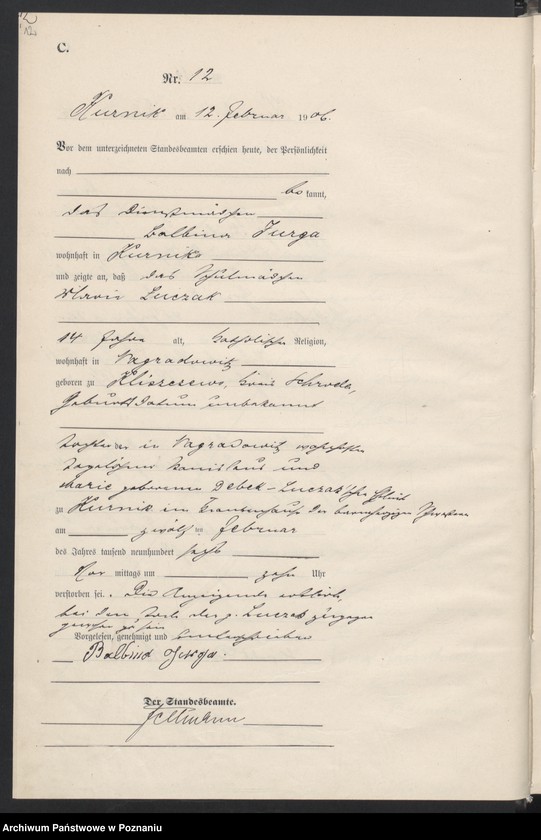 12
C.
Nr. 12
Kurnik am 12. Februar 1906.
Vor dem unterzeichneten Standesbeamten erschien heute, der Persönlichkeit
nach
be kannt,
das Dienstmädchen
Balbina Jurga
wohnhaft in Kurnik
und zeigte an, daß das Schulmädchen
Marie Luczak
14 Jahre alt, katholischer Religion,
wohnhaft in Nagradowitz
geboren zu Kliszczewo, Kreis Schroda,
Geburtsdatum unbekannt
Tochter der in Nagradowitz wohnhaften
Tagelöhner Stanislaus und
Marie geborenen Debek-Luczak'schen Eheleute
zu Kurnik im Krankenhaus der barmherzigen Schwestern
am zwölften Februar
des Jahres tausend neunhundert sechs
Vor mittags um zehn Uhr
verstorben sei. Die Anzeigende erklärt,
bei dem Tode der p. Luczak zugegen
gewesen zu sein
Vorgelesen, genehmigt und unterschrieben
Balbina Jurga.
Der Standesbeamte.
Archiwum Państwowe w Poznaniu